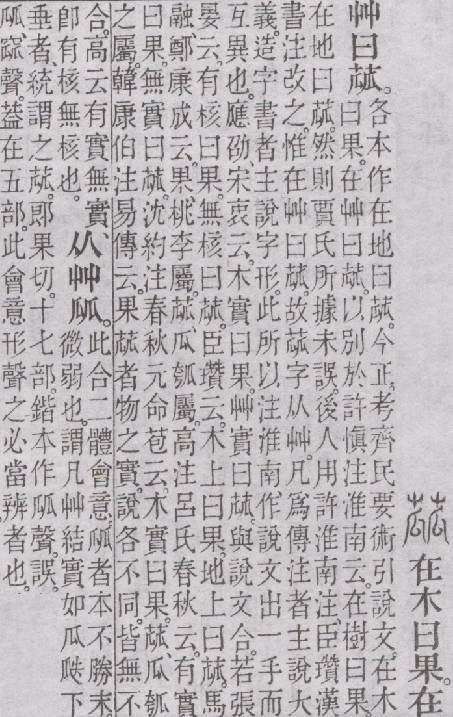 蓏 在木曰果。在
艸曰蓏。
各本作在地曰蓏。今正。考齊民要術引說文。在木
曰果。在艸曰蓏。以別於許愼注淮南云。在樹曰果。
在地曰蓏。然則賈氏所據未誤。後人用許淮南注、臣瓚漢
書注改之。惟在艸曰蓏。故蓏字从艸。凡爲傳注者主說大
義。造字書者主說字形。此所以注淮南、作說文出一手而
互異也。應劭宋衷云。木實曰果。艸實曰蓏。與說文合。若張
晏云。有核曰果。無核曰蓏。臣瓚云。木上曰果。地上曰蓏。馬
融、鄭康成云。果、桃李屬。蓏、瓜瓠屬。高注呂氏春秋云。有實
曰果。無實曰蓏。沈約注春秋元命苞云。木實曰果。蓏、瓜瓠
之屬。韓康伯注易傳云。果蓏者物之實。說各不同。皆無不
合。高云有實無實
卽有核無核也。
从艸㼌。
此合二體會意。㼌者本不勝末。
微弱也。謂凡艸結實如瓜瓞下
垂者、統謂之蓏。郎果切。十七部。鍇本作㼌聲。誤。
㼌窳聲。葢在五部。此會意形聲之必當辨者也。